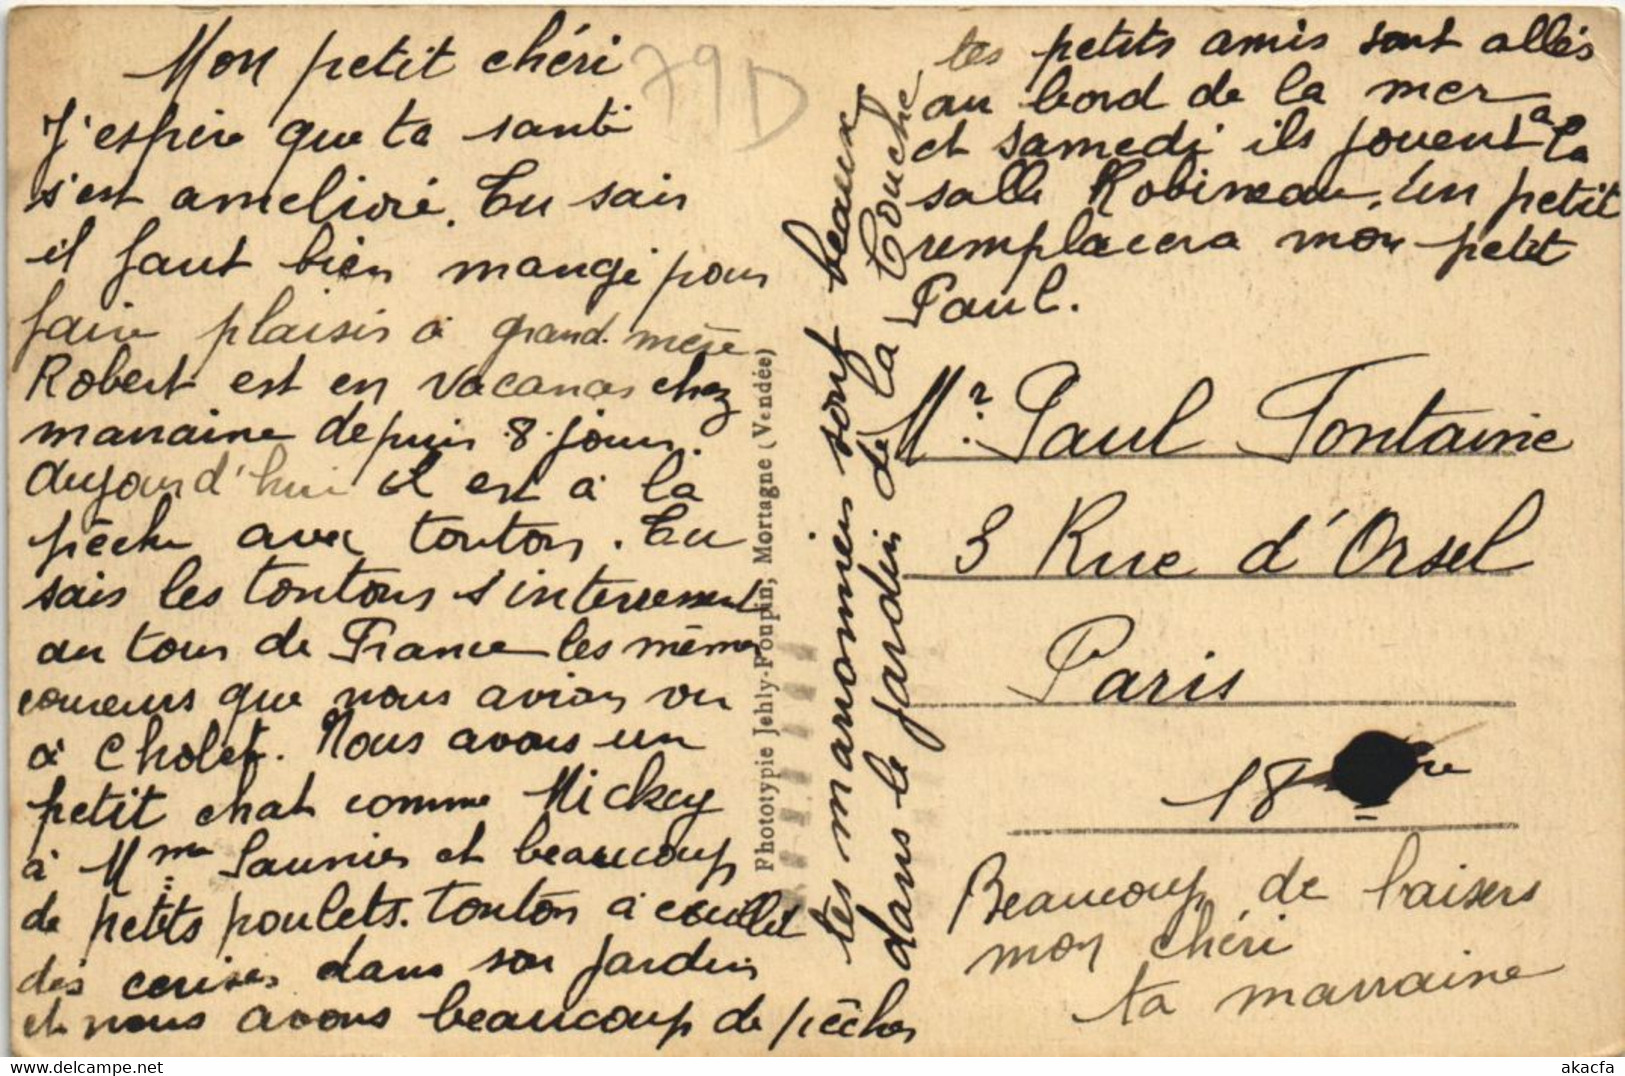 Mon petit chéri
J'espère que ta santé
s'est amelioré. Tu sais
il faut bien mangé pour
faire plaisir à grand-mère
Robert est en vacances chez
marraine depuis 8 jours.
aujourd'hui il est à la
pêche avec tonton. Tu
sais les tontons s'interressent
au tour de France les mêmes
coureurs que nous avions vu
à Cholet. Nous avons un
petit chat comme Mickey
à Mme Saunier et beaucoup
de petits poulets. tonton à cueillet
des cerises dans son jardin
et nous avons beaucoup de pêches
les marronniers sont beaux
dans le jardin de la Couche
tes petits amis sont allés
au bord de la mer
et samedi ils jouent à la
salle Robineau. Un petit
remplacera mon petit
Paul.
79D
Photoypie Jehly-Poupin, Mortagne (Vendée)
Mr. Paul Fontaine
3 Rue d'Orsel
Paris
18
Beaucoup de baisers
mon chéri
ta marraine
akacfa